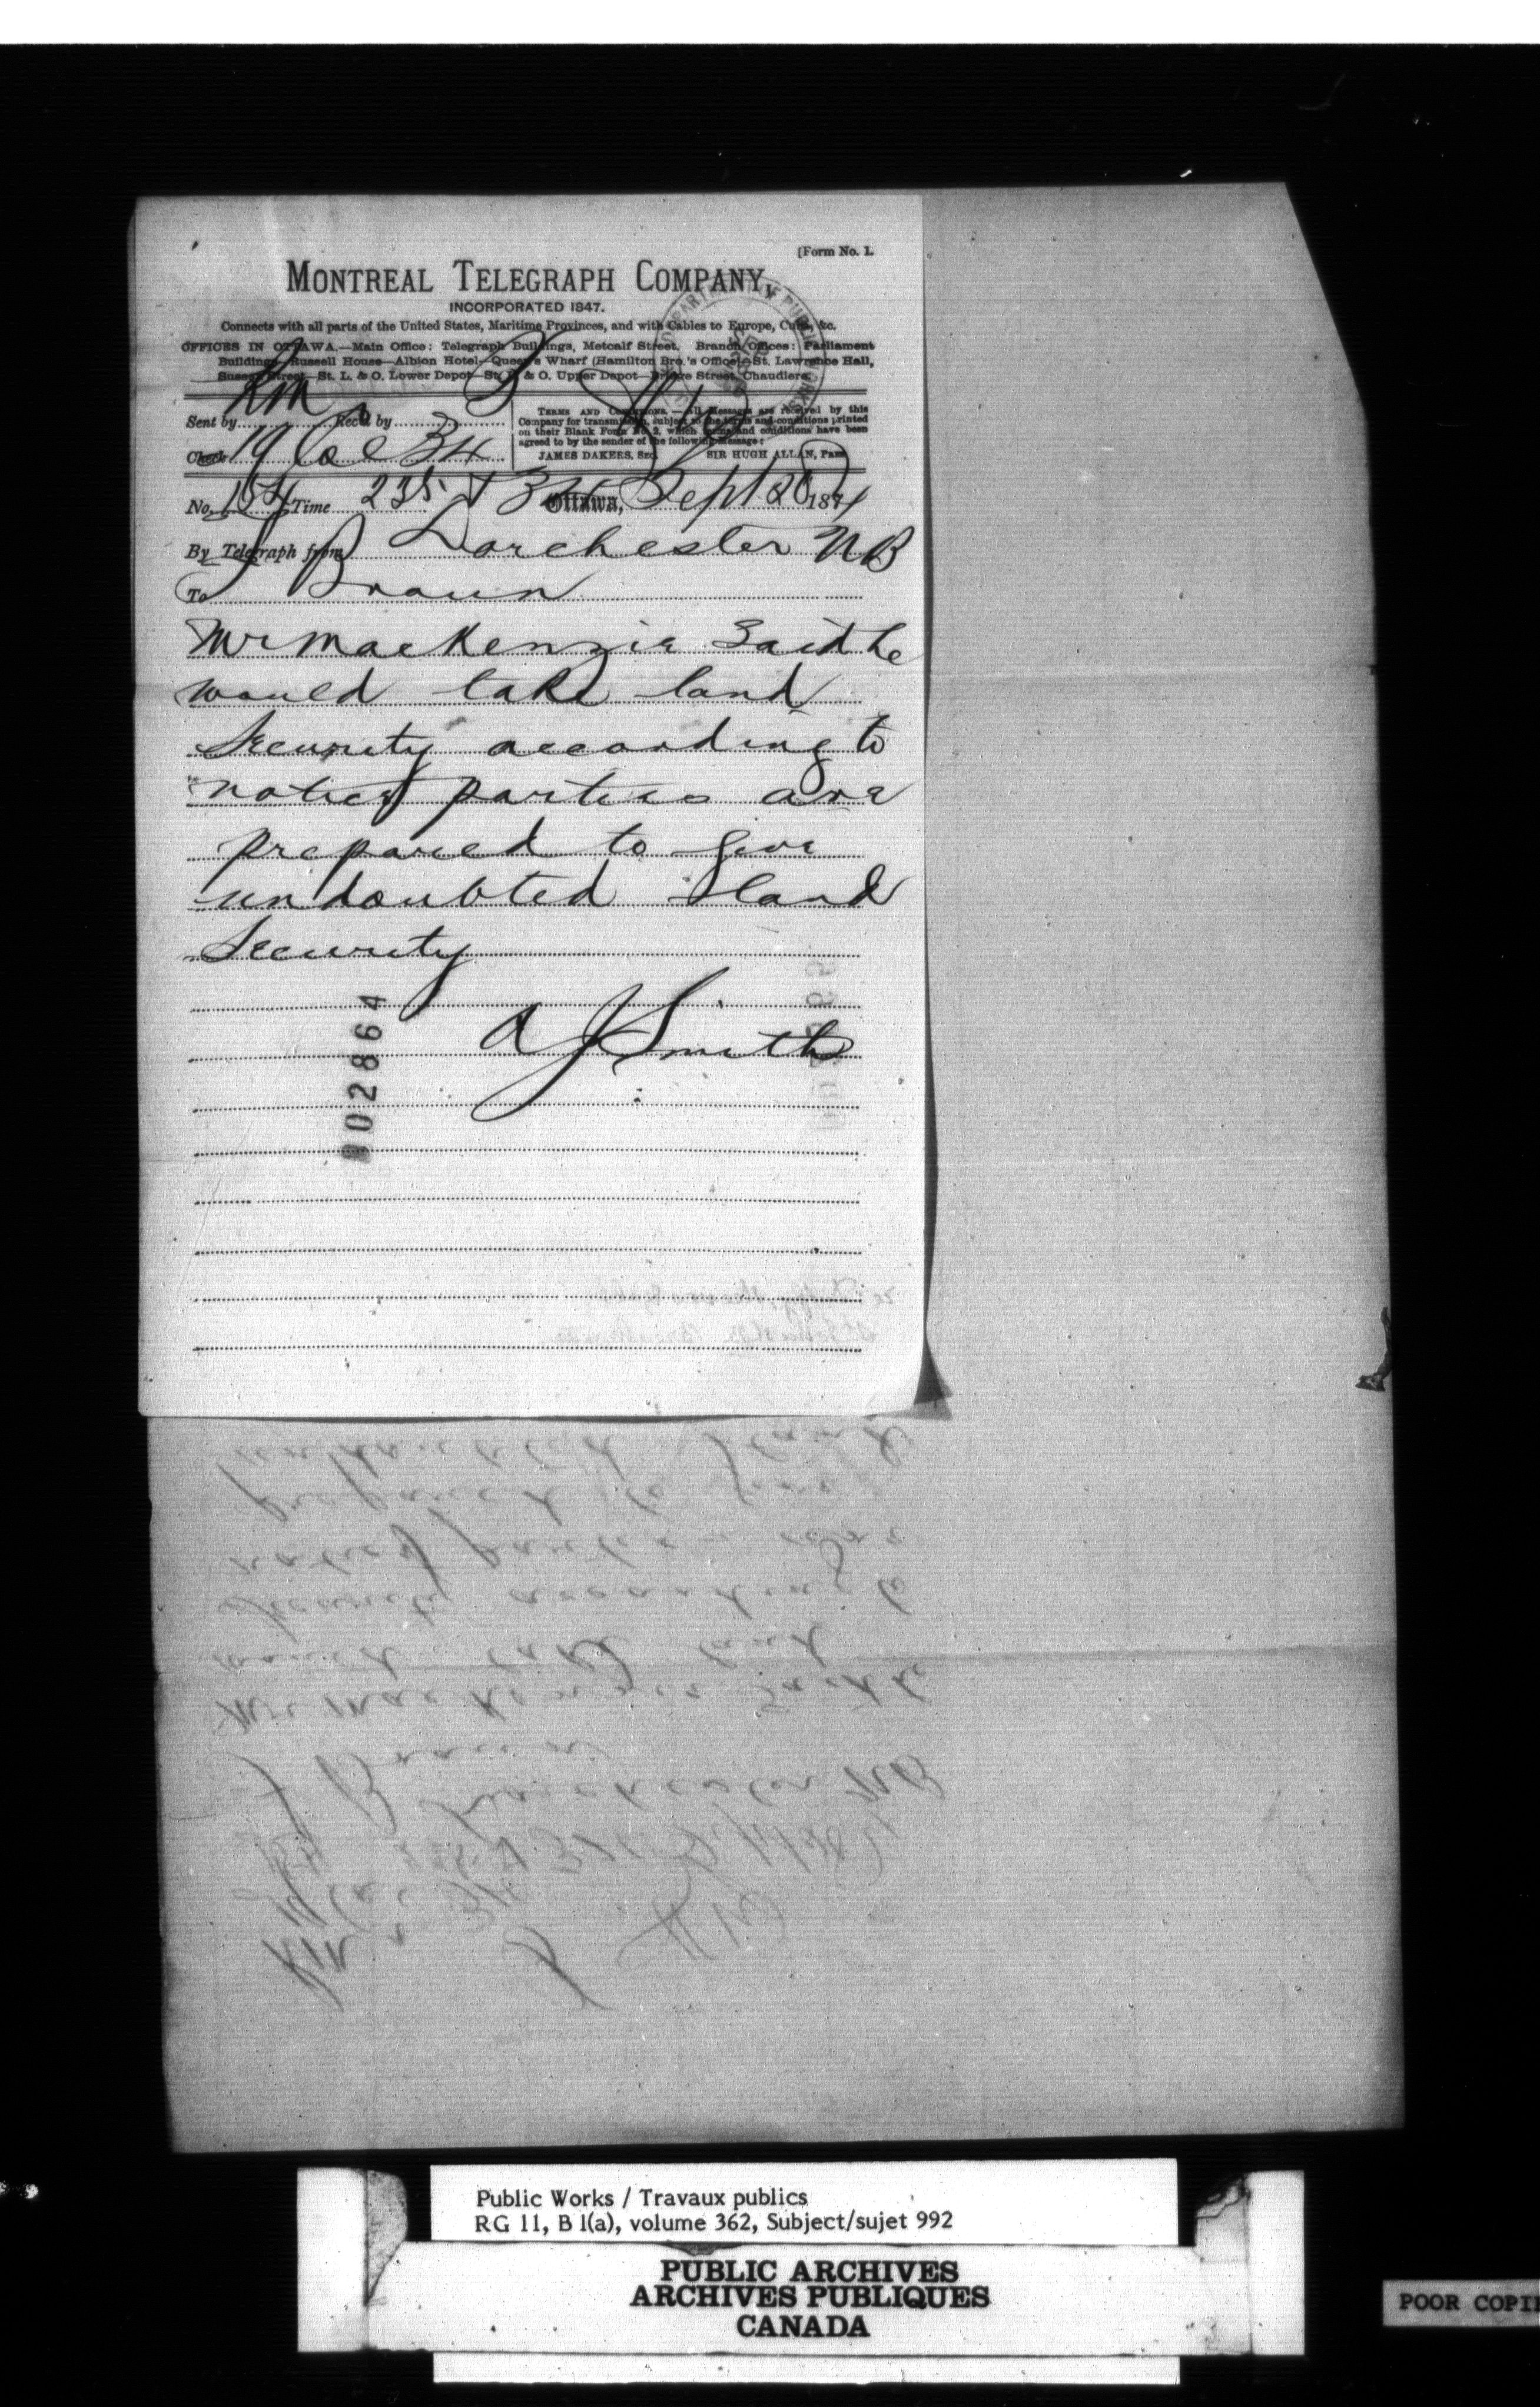 [Form No. 1.
MONTREAL TELEGRAPH COMPANY,
INCORPORATED 1847.
Connects with all parts of the United States, Maritime Provinces, and with Cables to Europe, Cuba, &c.
OFFICES IN OTTAWA.—Main Office: Telegraph Buildings, Metcalf Street. Branch Offices: Parliament
Buildings—Russell House—Albion Hotel—Queen's Wharf (Hamilton Bro.'s Office)—St. Lawrence Hall,
Sussex Street—St. L. & O. Lower Depot—St. L. & O. Upper Depot—Bridge Street, Chaudiere.
Sent by Rec'd by
TERMS AND CONDITIONS.—All Messages are received by this
Company for transmission, subject to the terms and conditions printed
on their Blank Form No. 2, which terms and conditions have been
agreed to by the sender of the following Message:
JAMES DAKERS, Sec. SIR HUGH ALLAN, Pres.
Check 19 Col 34
No. 154 Time 235 Ottawa, Sept 28 1874
By Telegraph from Dorchester NB
To F Braun
Mr MacKenzie Said he
would take land
Security according to
notice parties are
prepared to give
undoubted land
Security
A J Smith
002864
Public Works / Travaux publics
RG 11, B 1(a), volume 362, Subject/sujet 992
PUBLIC ARCHIVES
ARCHIVES PUBLIQUES
CANADA
POOR COPIE